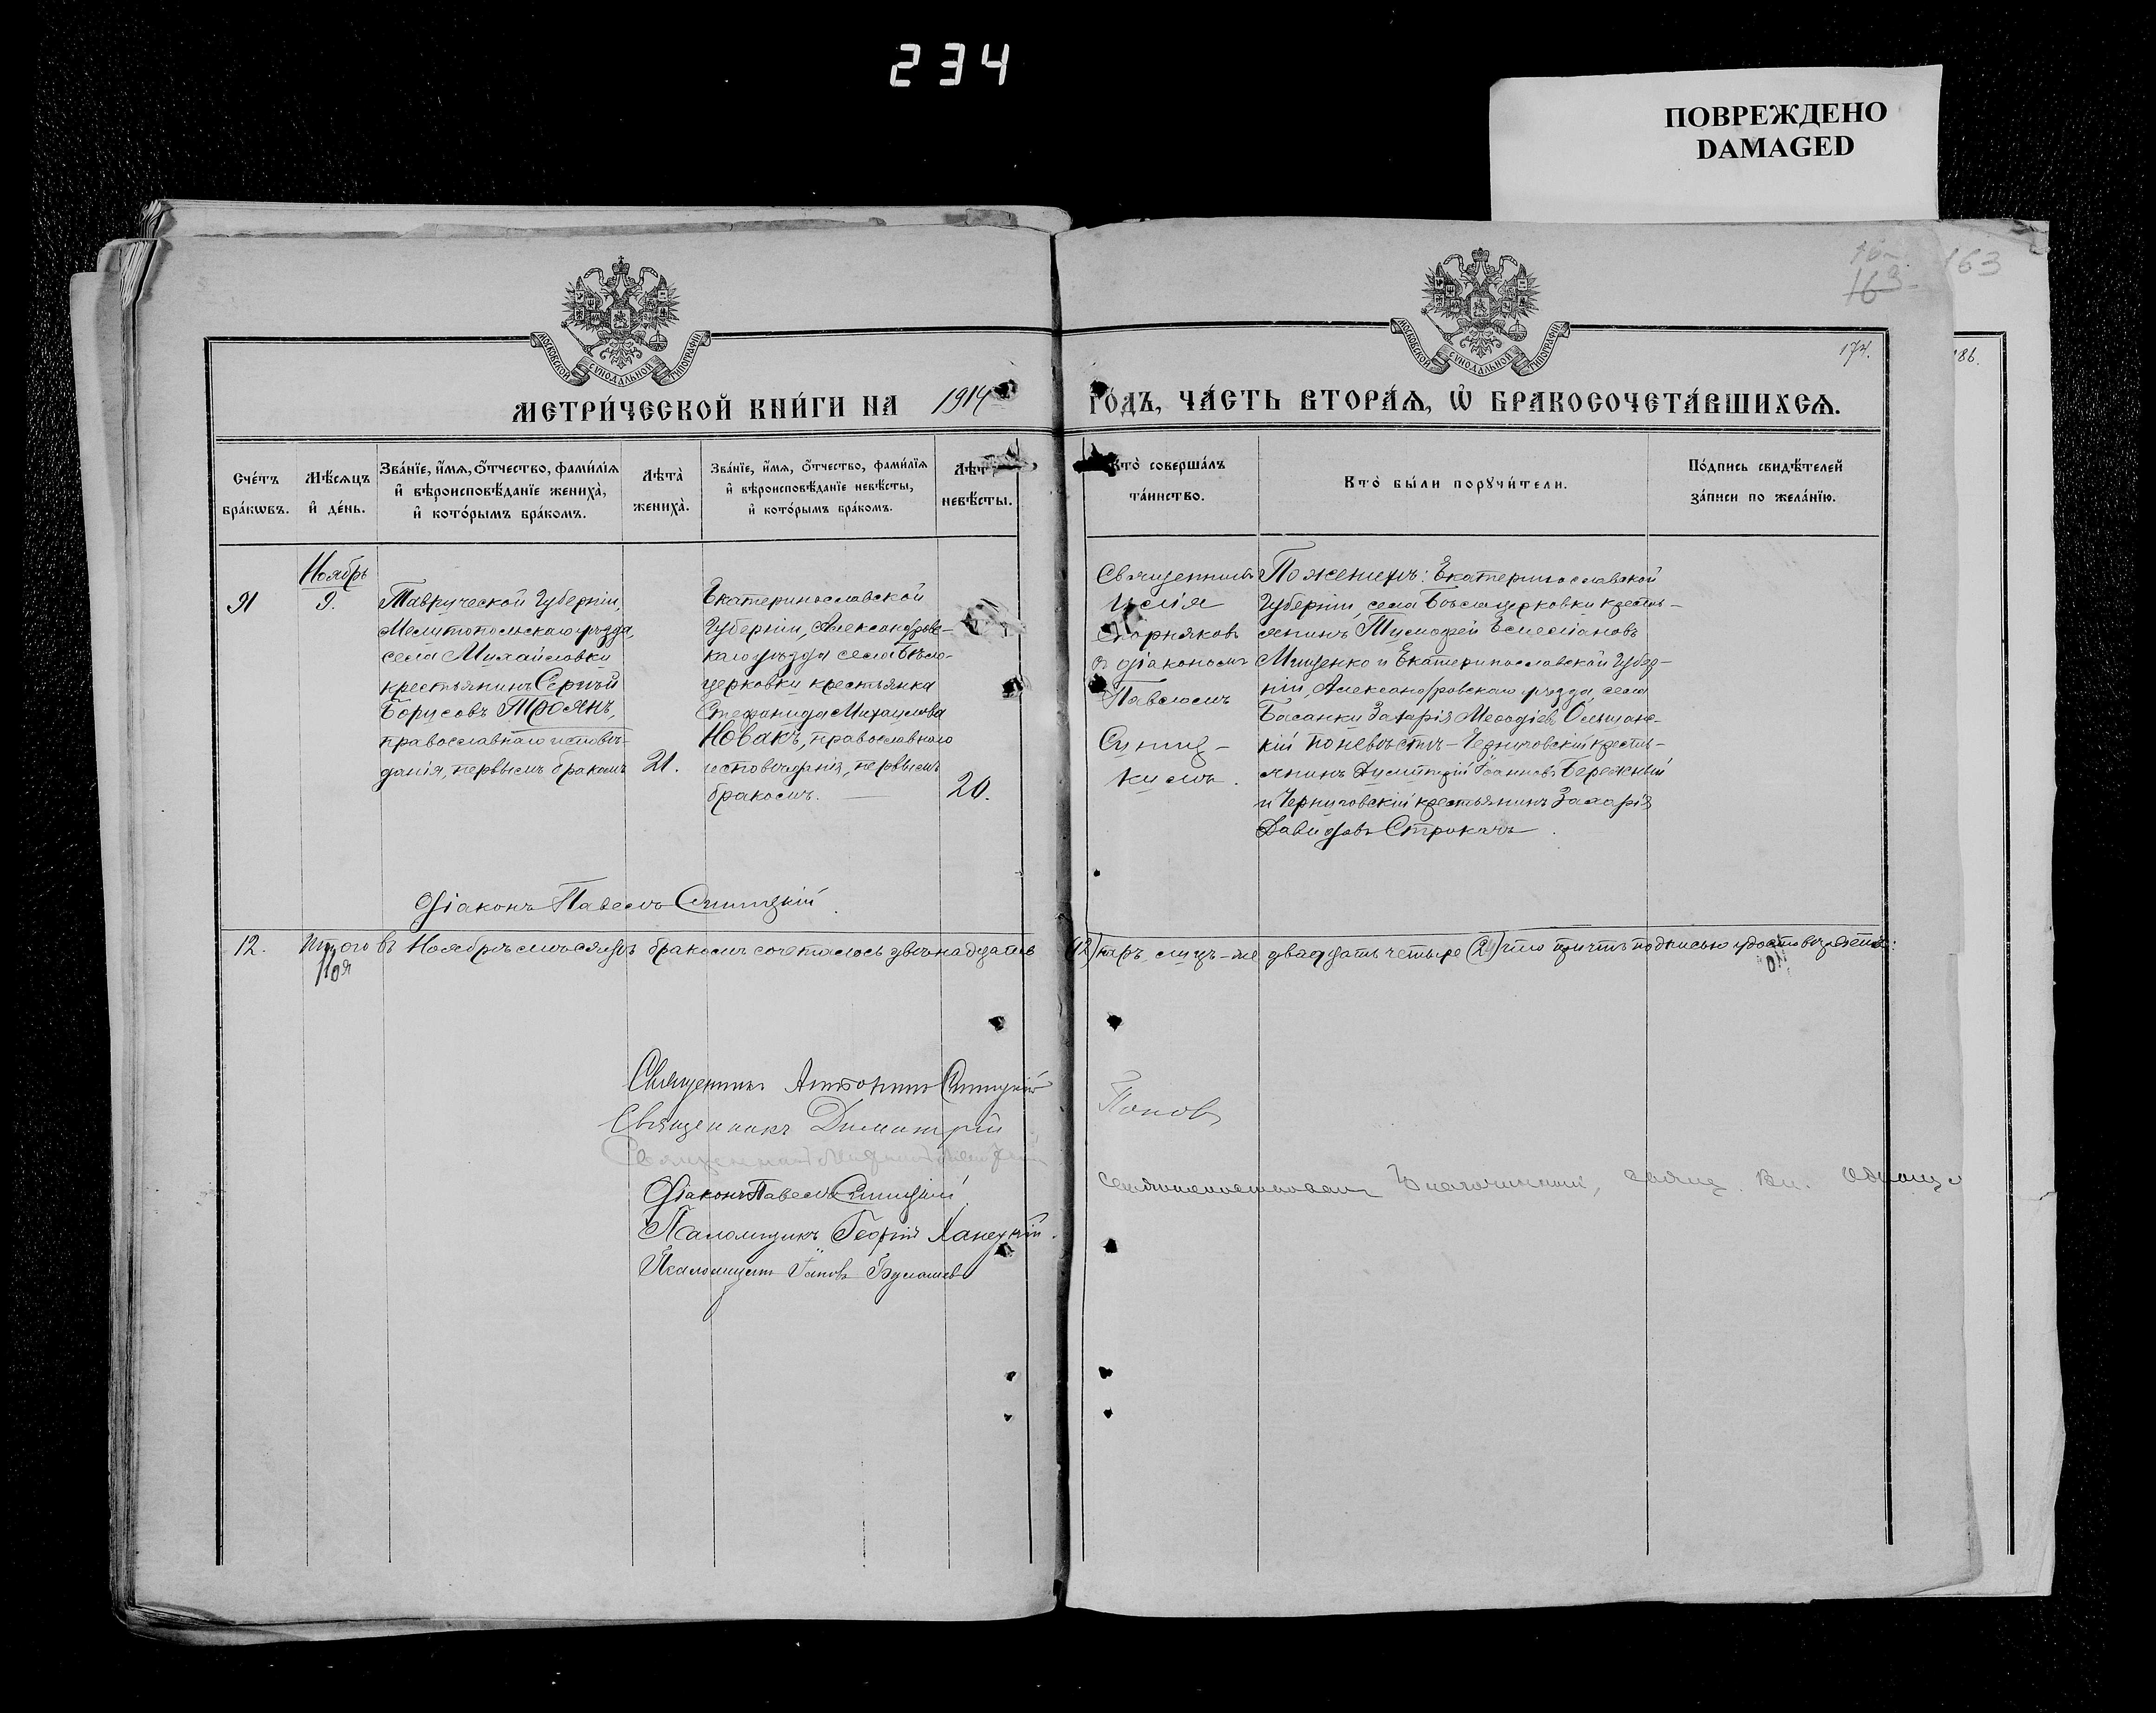 234
ПОВРЕЖДЕНО
DAMAGED
163
163
174.
186.
МОСКОВСКОЙ СУНОДАЛЬНОЙ ТИПОГРАФІИ
МОСКОВСКОЙ СУНОДАЛЬНОЙ ТИПОГРАФІИ
МЕТРИ́ЧЕСКОЙ КНИ́ГИ НА 1914
ГО́ДЪ, ЧА́СТЬ ВТОРА́Ѧ, Ѽ БРАКОСОЧЕТА́ВШИХСѦ.
Сче́тъ бра́кωвъ.
Мѣ́сѧцъ и҆ де́нь.
Зва́нїе, и҆́мѧ, ѻ҆́тчество, фами́лїѧ и҆ вѣроисповѣ́данїе жениха̀, и҆ кото́рымъ бра́комъ.
Лѣ́та̀ жениха̀.
Зва́нїе, и҆́мѧ, ѻ҆́тчество, фами́лїѧ и҆ вѣроисповѣ́данїе невѣ́сты, и҆ кото́рымъ бра́комъ.
Лѣт невѣ́сты.
Кто̀ соверша́лъ та́инство.
Кто̀ бы́ли порꙋчи́тели.
По́дпись свидѣ́телей за́писи по жела́нїю.
Ноябрь
91
9.
Таврической Губерніи,
Мелитопольскаго уѣзда,
села Михайловки
крестьянинъ Сергѣй
Борисовъ Троянъ,
православнаго исповѣ-
данія, первымъ бракомъ
21.
Екатеринославской
Губерніи, Александровс-
каго уѣзда села Бѣло-
церковки крестьянка
Стефанида Михаилова
Новакъ, православнаго
исповѣданія, первымъ
бракомъ.
20.
Священникъ
Илія
Скорняковъ
съ діакономъ
Павломъ
Синиц-
кимъ.
По женихѣ: Екатеринославской
Губерніи, села Бѣлоцерковки кресть-
янинъ Тимофей Емеліановъ
Мищенко и Екатеринославской Губер-
ніи, Александровскаго уѣзда, села
Басанки Захарія Меѳодіевъ Ольшанс-
кій по невѣстѣ - Черниговскій кресть-
янинъ Димитрій Іоанновъ Бережный
и Черниговскій крестьянинъ Захарія
Давидовъ Строкачъ.
Діаконъ Павелъ Синицкій.
12. Итого въ Ноябрѣ мѣсяцѣ бракомъ сочеталось двѣнадцать (12) паръ, лицъ-же двадцать четыре (24) что причтъ подписью удостовѣряетъ:
Священникъ Антонинъ Синицкій
Священникъ Димитрій Поповъ
Священникъ
Діаконъ Павелъ Синицкій
Псаломщикъ Георгій Ханецкій.
Псаломщикъ
Благочинный, свящ.